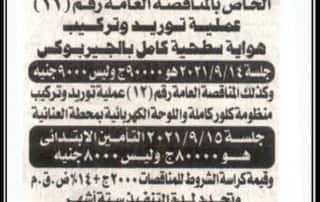 الخاص بالمناقصة العامة رقم (١١)
عملية توريد وتركيب
هواية سطحية كامل بالجيربوكس
جلسة ٢٠٢١/٩/١٤ هو ٩٠٠٠٠ج وليس ٩٠٠٠ جنيه
وكذلك المناقصة العامة رقم (١٢) عملية توريد وتركيب
منظومة كلور كاملة واللوحة الكهربائية بمحطة العنانية
جلسة ٢٠٢١/٩/١٥ التأمين الابتدائى
هو ٨٠٠٠٠ج وليس ٨٠٠٠ جنيه
وقيمة كراسة الشروط للمناقصات ٢٠٠٠ج + ١٤٪ ض.ق.م
وتحدد لمدة التنفيذ ستة أشهر